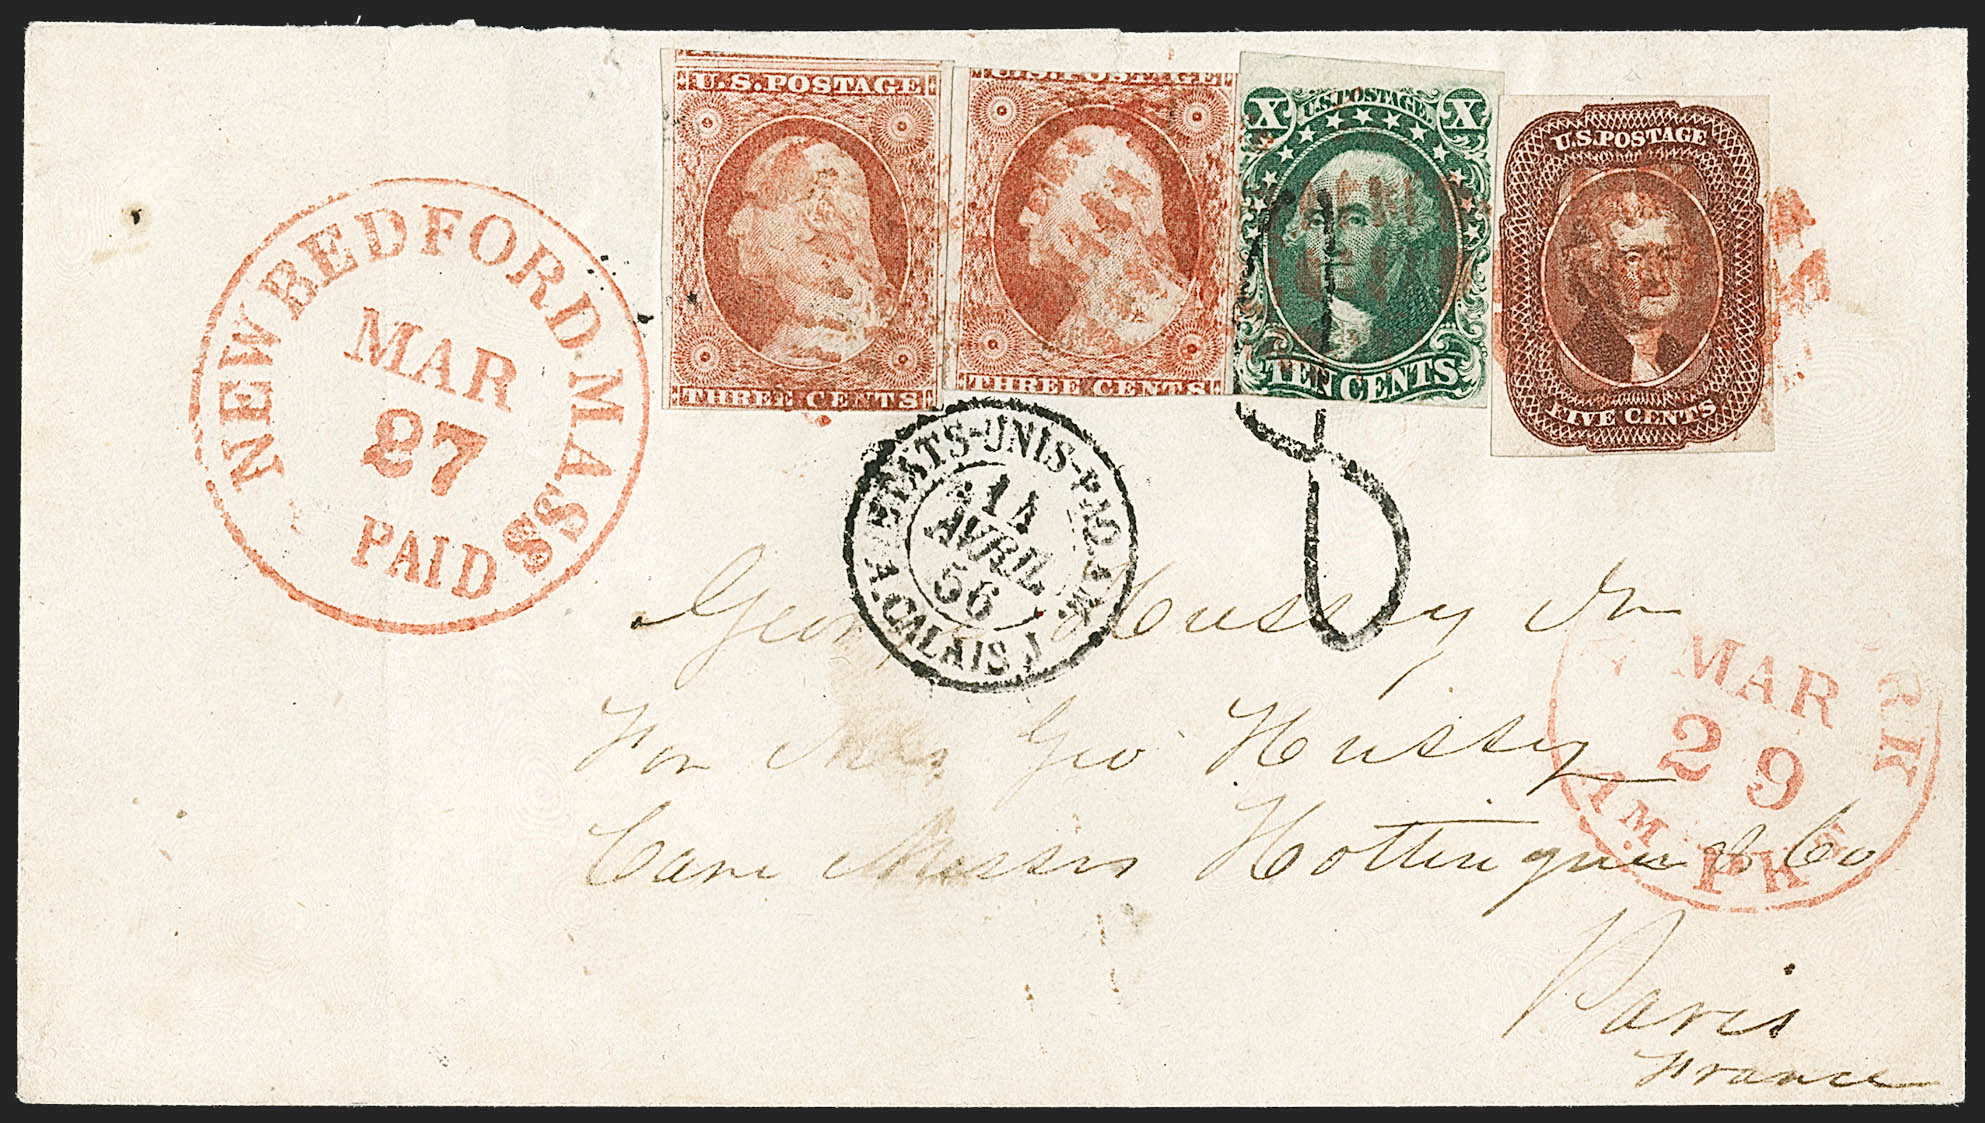 U.S. POSTAGE
THREE CENTS
U.S. POSTAGE
THREE CENTS
X U.S. POSTAGE X
TEN CENTS
U.S. POSTAGE
FIVE CENTS
NEW BEDFORD MASS
MAR
27
PAID
ETATS-UNIS-PAQ.AM.
14
AVRIL
56
A.CALAIS
8
Geor Hussey Jr
For Mrs Geo Hussey
Care Messrs Hottinguer & Co
Paris
France
RK
MAR
29
AM. PKT